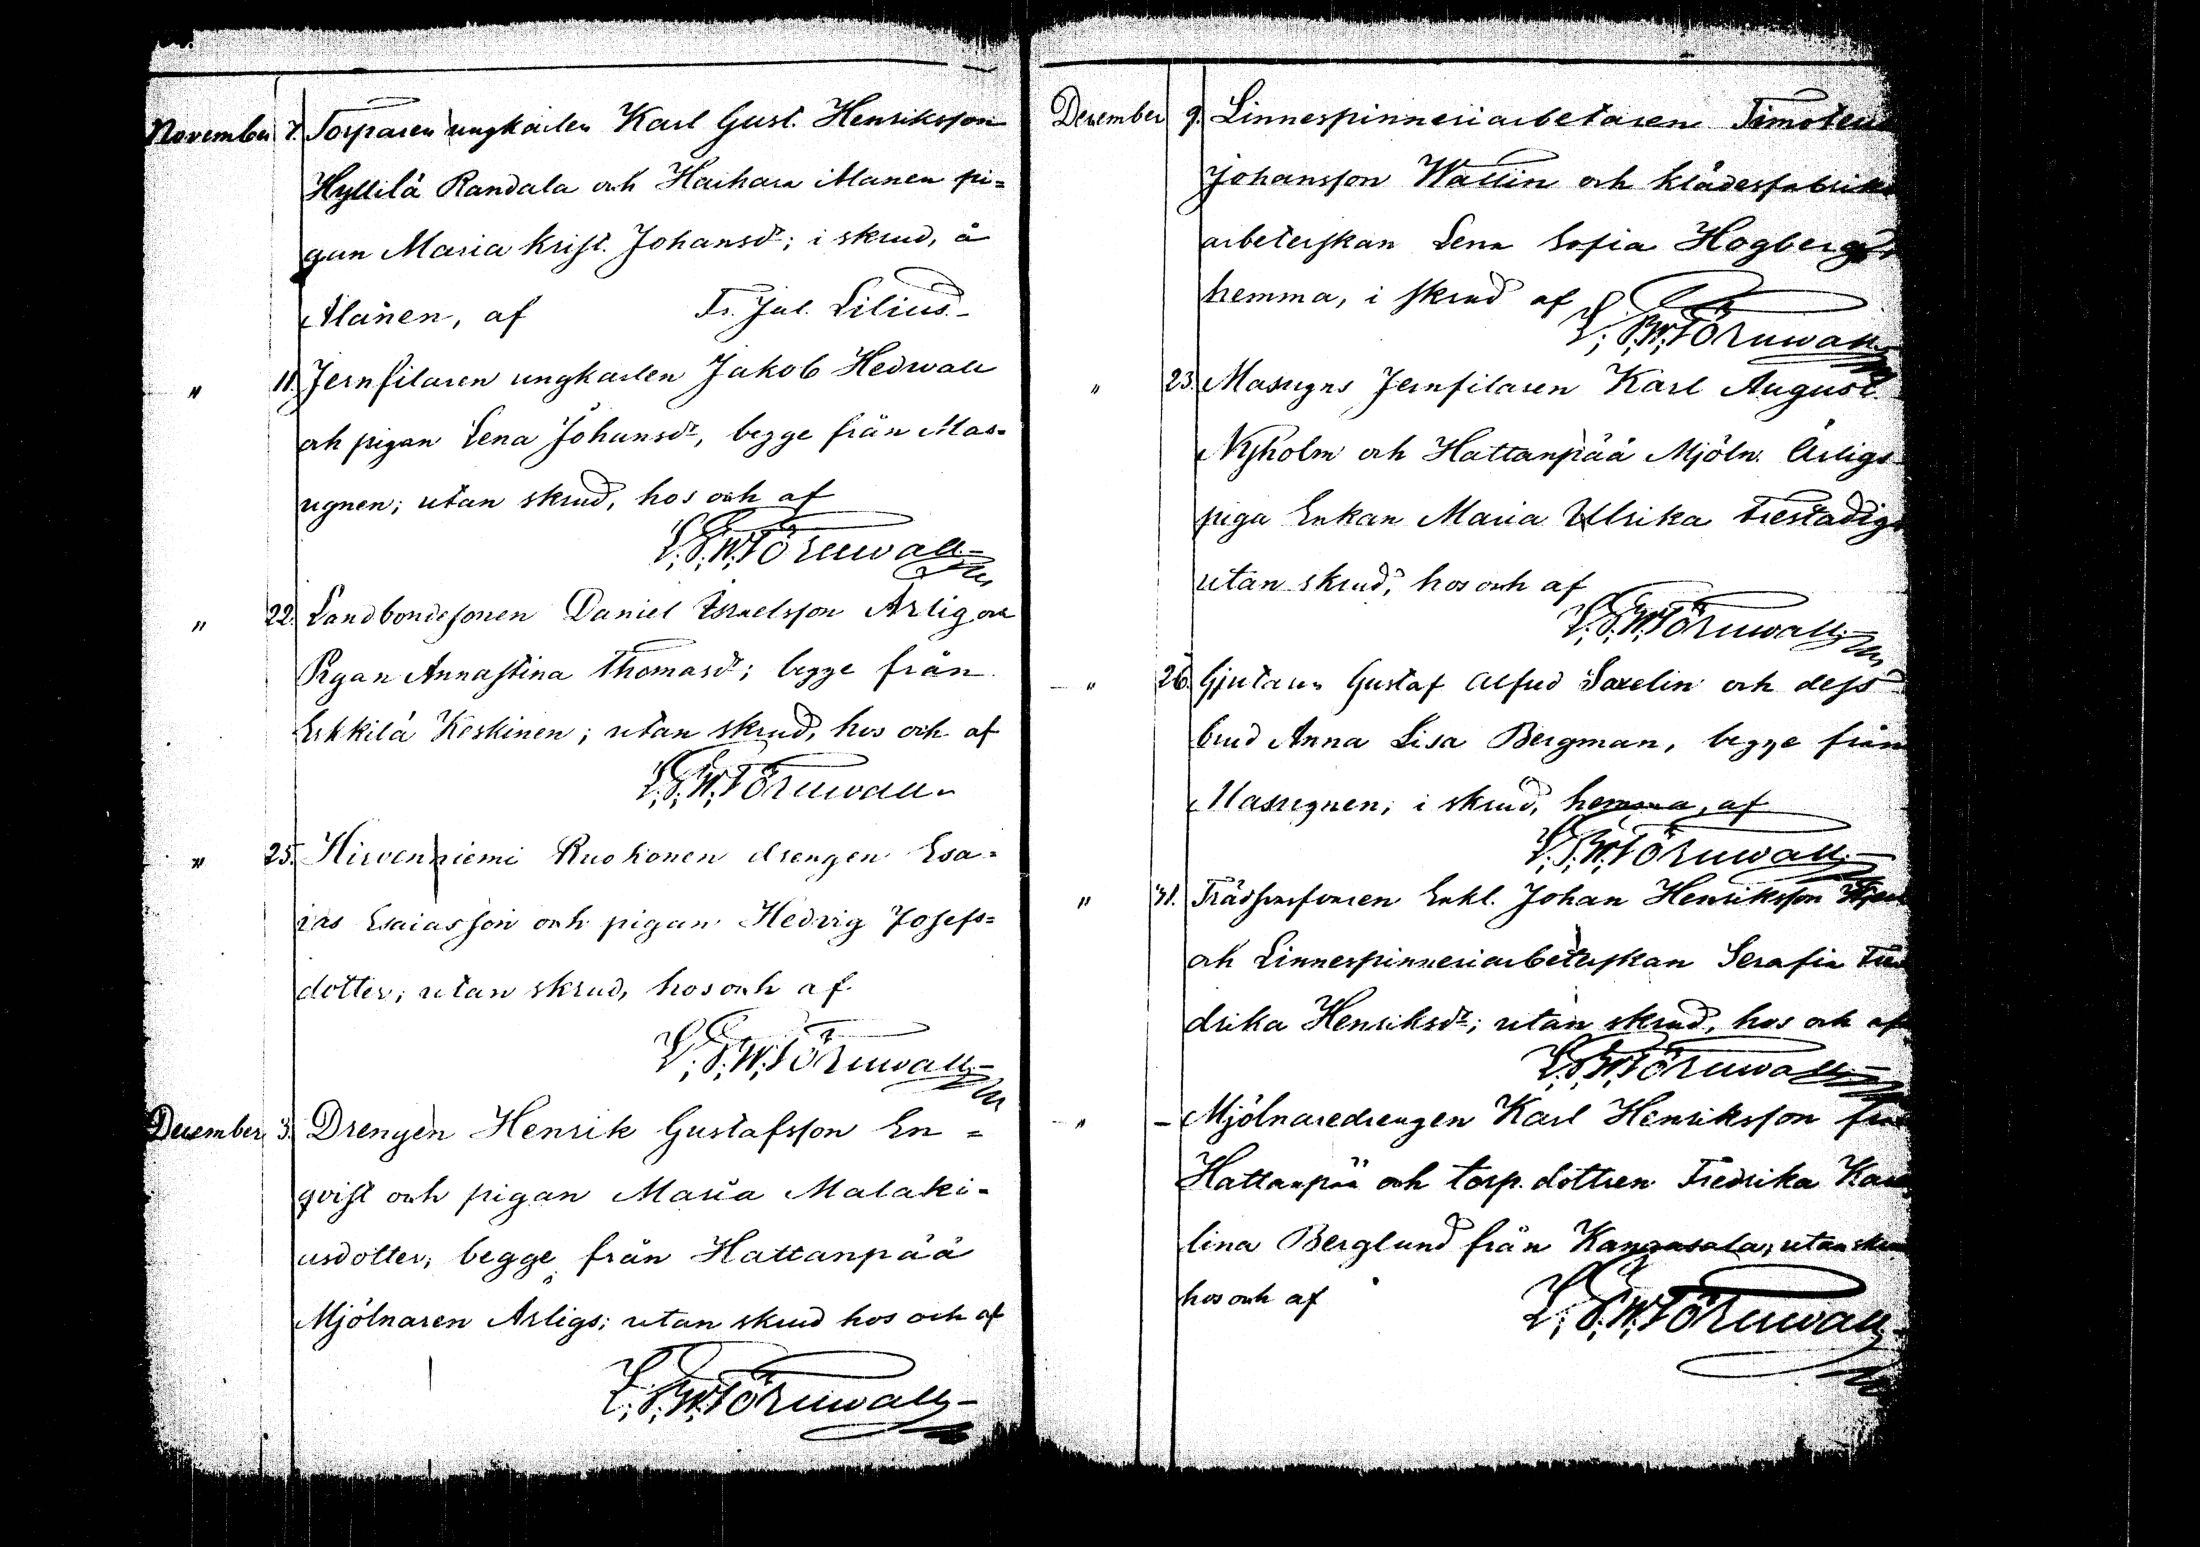 November 7. Torparen ungkarlen Karl Gust. Henriksson
Hyllilä Randala och Haihara Alanen pi=
gan Maria Krist. Johansdr; i skrud, å
Alanen, af Fr. Jul. Lilius.
" 11. Jernfilaren ungkarlen Jakob Hedvall
och pigan Lena Johansdr, begge från Mas-
ugnen; utan skrud, hos och af
L. P. W. Törnwall.
" 22. Landbondesonen Daniel Israelsson Arlig och
Pigan Annastina Thomasdr; begge från
Erkkilä Keskinen; utan skrud, hos och af
L. P. W. Törnwall.
" 25. Hirvenniemi Ruohonen drengen Esa=
ias Esaiasson och pigan Hedvig Josefs=
dotter; utan skrud, hos och af
L. P. W. Törnwall.
December 3. Drengen Henrik Gustafsson En=
qvist och pigan Maria Malaki-
usdotter; begge från Hattanpää
Mjölnaren Arligs; utan skrud hos och af
L. P. W. Törnwall.
December 9. Linnespinneriarbetaren Timoteus
Johansson Wallin och klädesfabriks
arbeterskan Lena Sofia Hogberg,
hemma, i skrud af
L. P. W. Törnwall.
" 23. Masugns Jernfilaren Karl August
Nyholm och Hattanpää Mjöln. Arligs
piga Enkan Maria Ulrika Frestadig,
utan skrud, hos och af
L. P. W. Törnwall.
" 26. Gjutaren Gustaf Alfred Saxelin och dess
brud Anna Lisa Bergman, begge från
Masugnen; i skrud, hemma, af
L. P. W. Törnwall.
" 31. Enkl. Johan Henriksson
och Linnespinneriarbeterskan Serafia Fre
drika Henriksdr; utan skrud, hos och af
L. P. W. Törnwall.
" - Mjölnaredrengen Karl Henriksson från
Hattanpää och torp. dottren Fredrika Karo
lina Berglund från Kangasala; utan skrud
hos och af L. P. W. Törnwall.